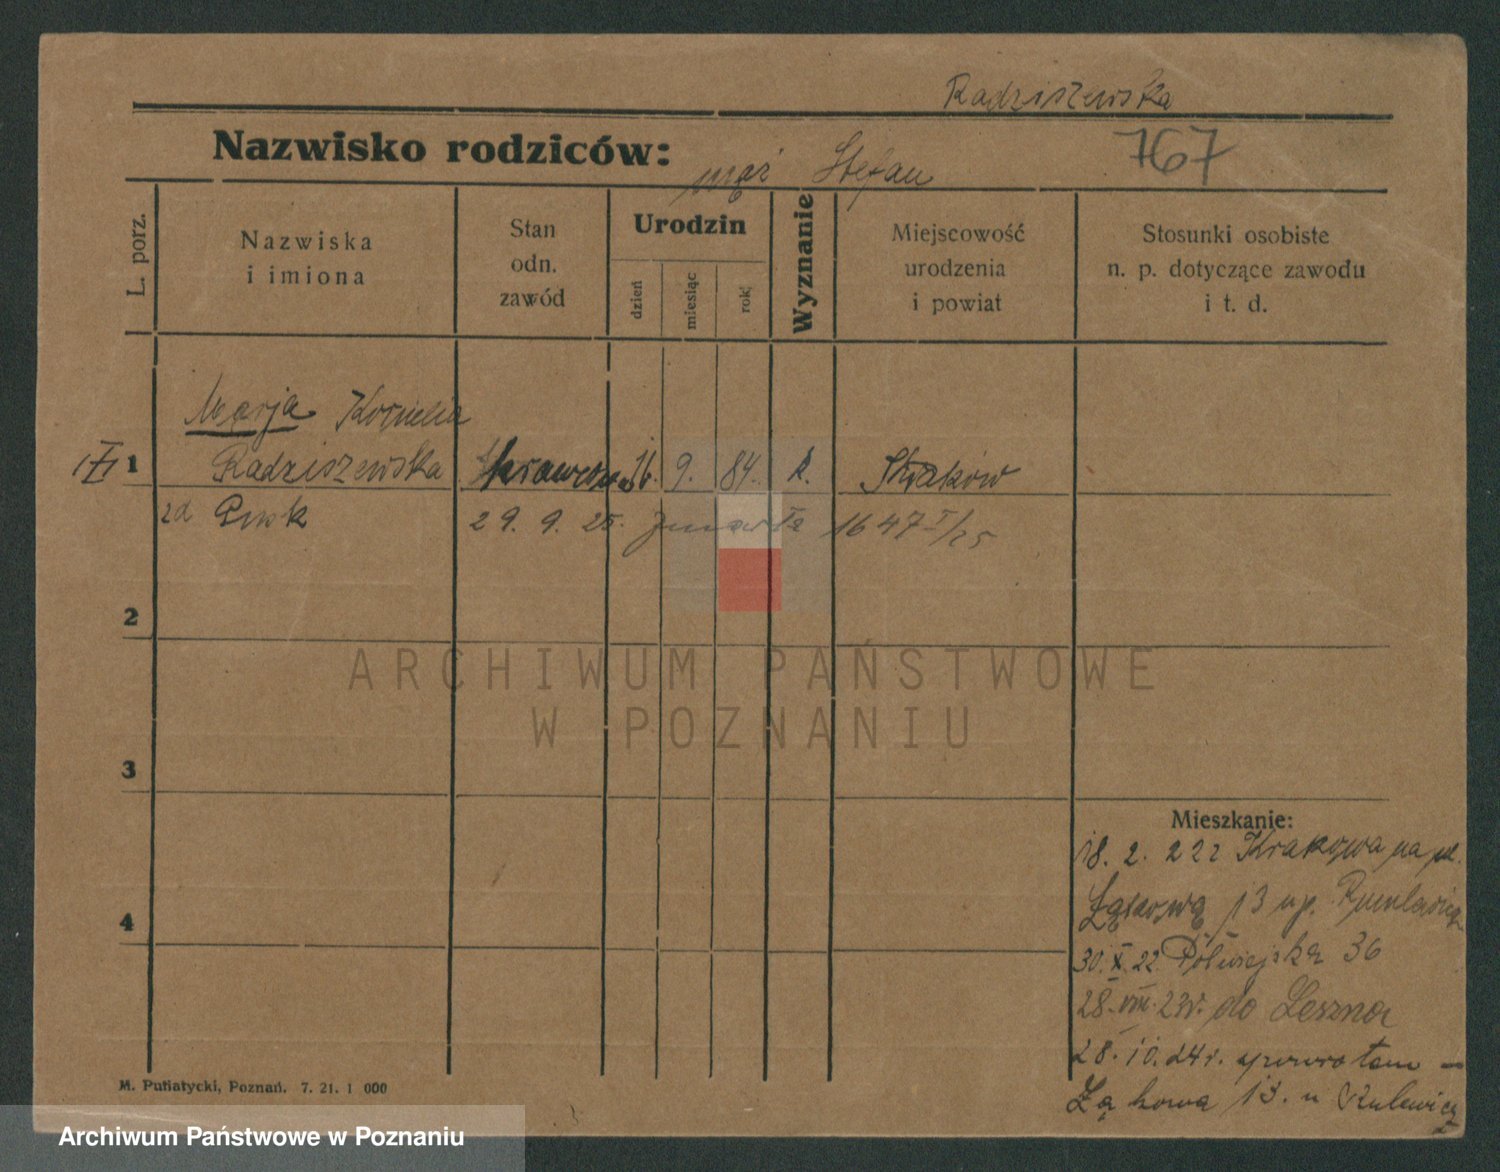 Radziszewska
Nazwisko rodziców: mąż Stefan 767
L. porz.
Nazwiska
i imiona
Stan
odn.
zawód
Urodzin
dzień
miesiąc
rok
Wyznanie
Miejscowość
urodzenia
i powiat
Stosunki osobiste
n. p. dotyczące zawodu
i t. d.
Marja Kornelia
1 Radziszewska 16. 9. 84. k. Kraków
zd 29. 9. 25. zmarła 1647 I/25
2
3
4
Mieszkanie:
18. 2. 22 z Krakowa na ul.
Łąkową 13 u p.
30.X.22 Półwiejska 36
28.VIII.23r. do Leszna
28.10.24r. z powrotem –
Łąkowa 13. u
M. Putiatycki, Poznań. 7. 21. 1 000
ARCHIWUM PAŃSTWOWE
W POZNANIU
Archiwum Państwowe w Poznaniu